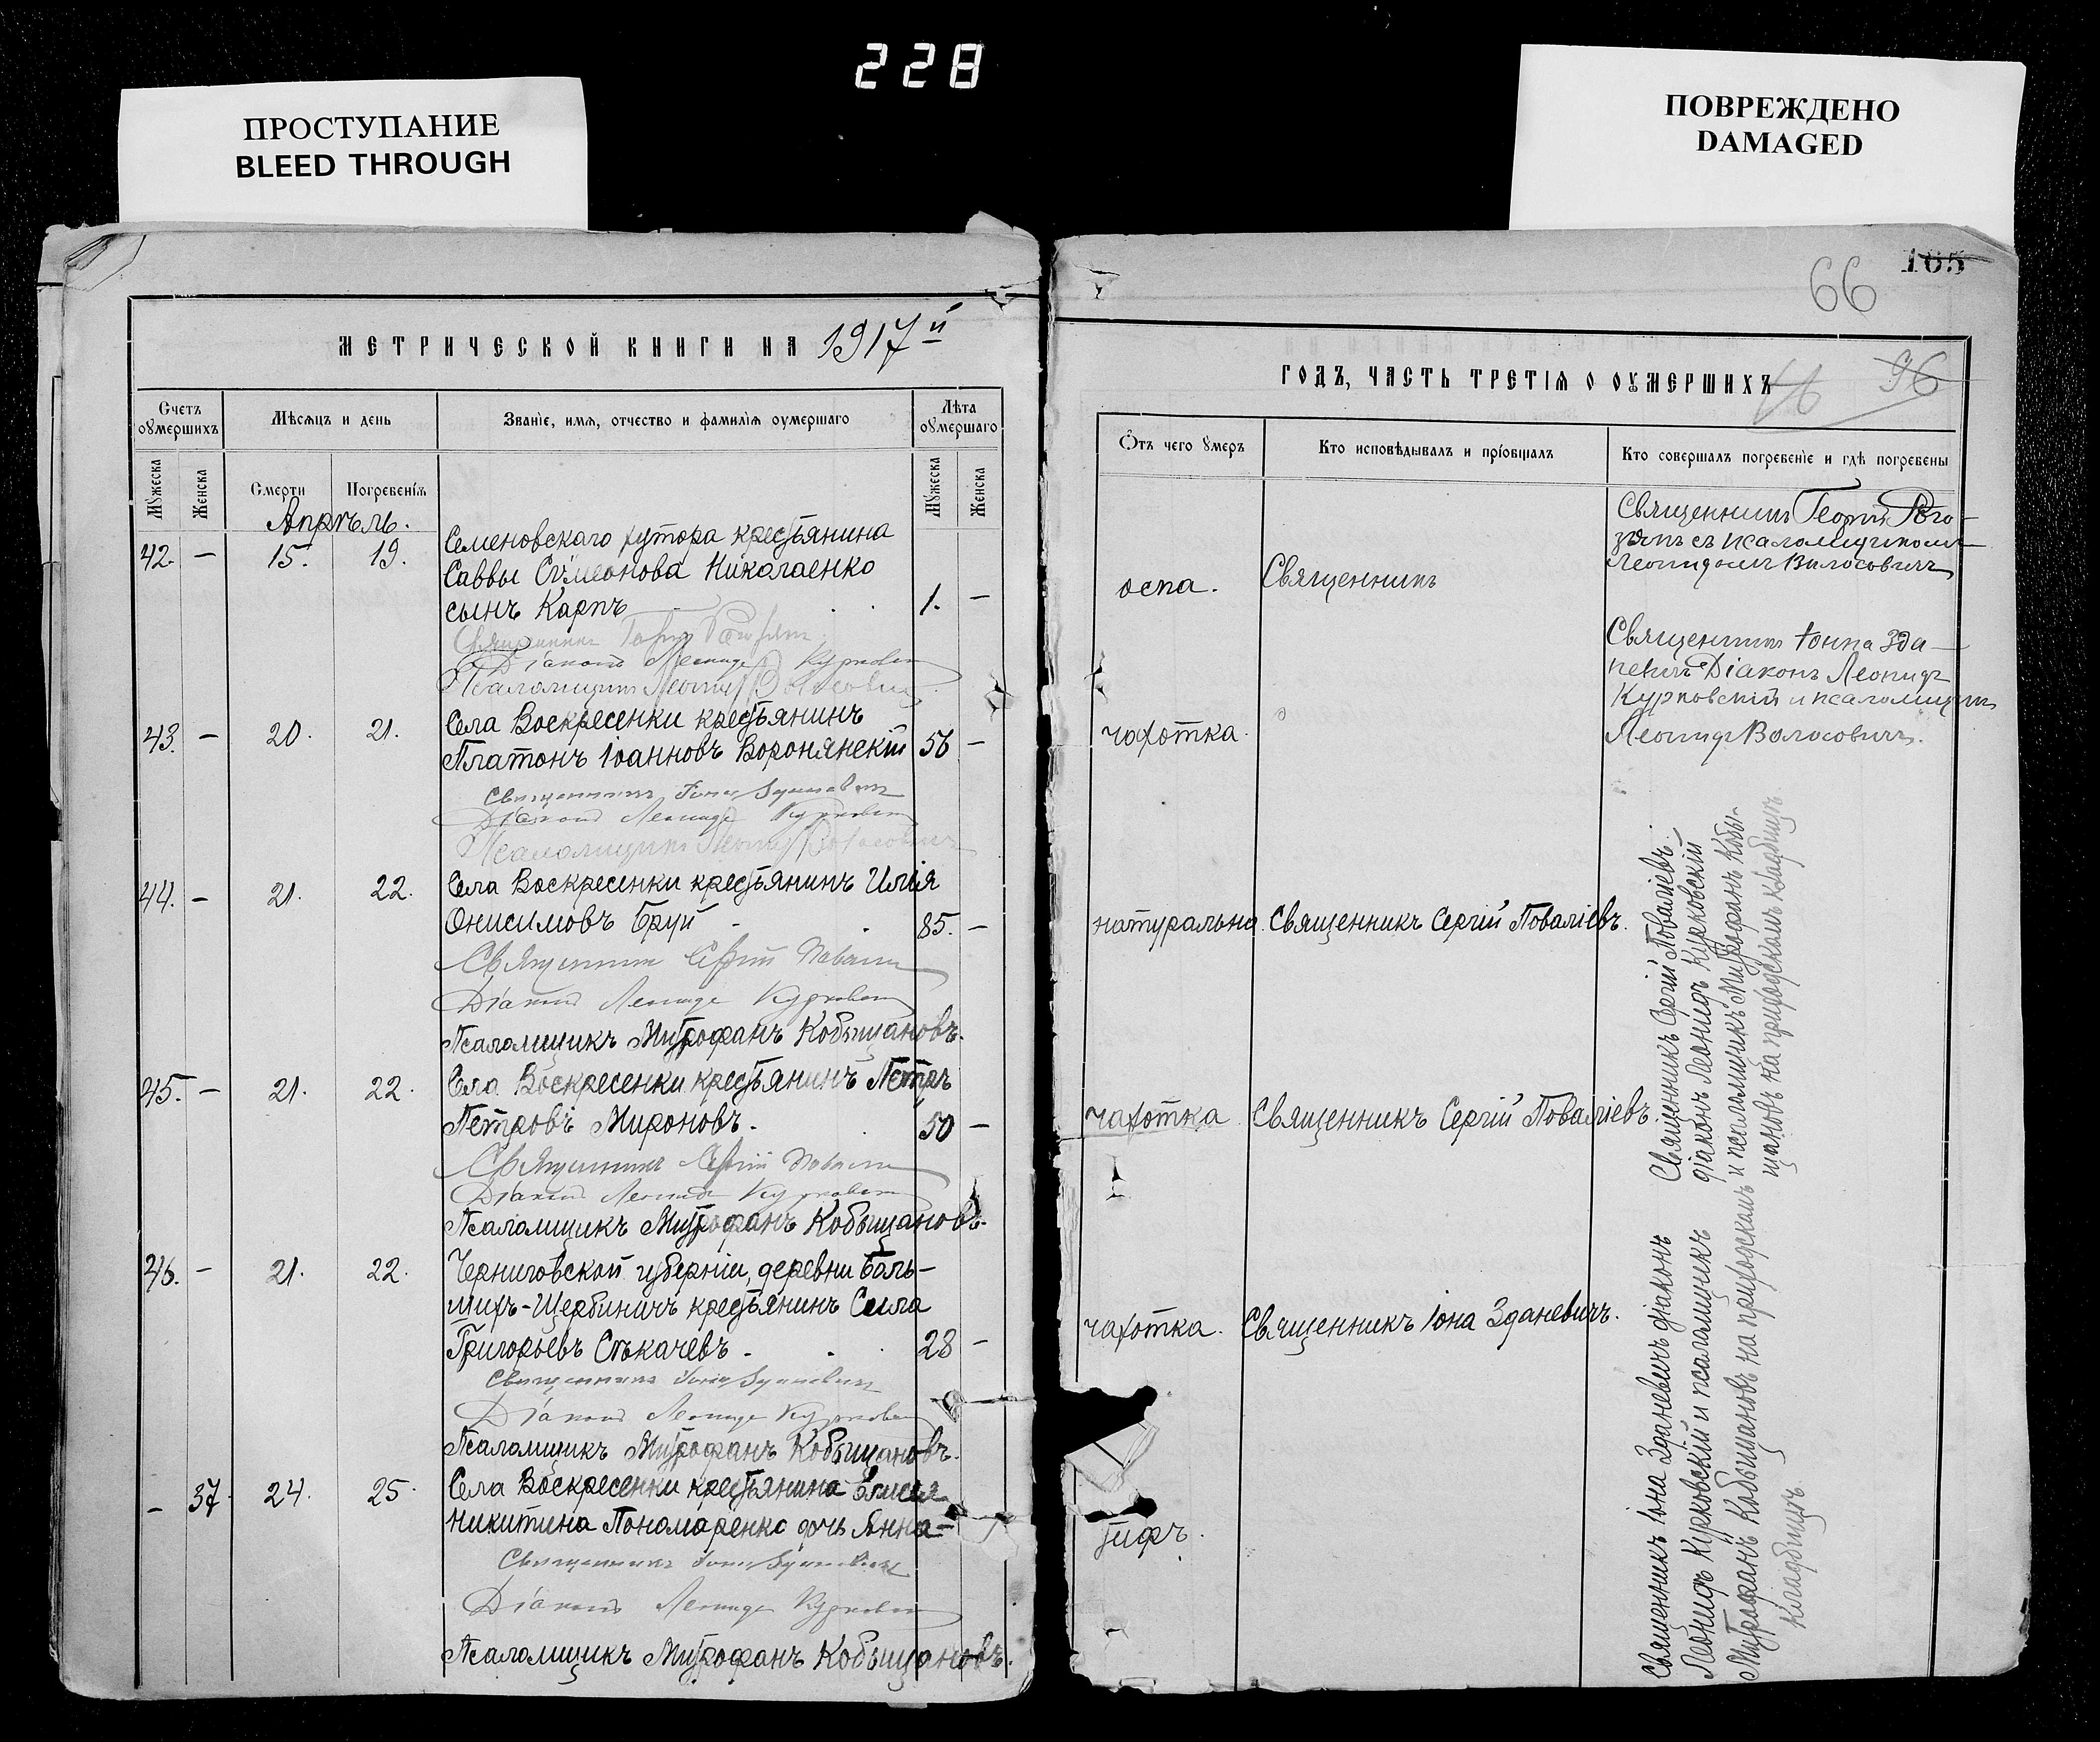 228
ПРОСТУПАНИЕ
BLEED THROUGH
ПОВРЕЖДЕНО
DAMAGED
МЕТРИЧЕСКОЙ КНИГИ НА 1917й
Счетъ оумершихъ
Мѣсяцъ и день
Званіе, имя, отчество и фамилія оумершаго
Лѣта оумершаго
Мужеска
Женска
Смерти
Погребенія
Мужеска
Женска
Апрѣль.
42. — 15. 19.
Семеновскаго хутора крестьянина
Саввы Сѵмеонова Николаенко
сынъ Карпъ 1. —
Діаконъ Леонидъ
Псаломщикъ Леонидъ Волосовичъ
43. — 20. 21.
Села Воскресенки крестьянинъ
Платонъ Іоанновъ Воронянскій 56 —
Священникъ Іона Зданевичъ
Діаконъ Леонидъ
Псаломщикъ Леонидъ Волосовичъ
44. — 21. 22.
Села Воскресенки крестьянинъ Илія
Онисимовъ Бруй 85. —
Священникъ Сергій
Діаконъ Леонидъ
Псаломщикъ Митрофанъ Кобыщановъ.
45. — 21. 22.
Села Воскресенки крестьянинъ Петръ
Петровъ Мироновъ. 50 —
Священникъ Сергій
Діаконъ Леонидъ
Псаломщикъ Митрофанъ Кобыщановъ.
46. — 21. 22.
Черниговской губерніи, деревни Боль-
шихъ-Щербиничъ крестьянинъ Сила
Григорьевъ Стькачевъ. 28 —
Священникъ Іона Зданевичъ
Діаконъ Леонидъ
Псаломщикъ Митрофанъ Кобыщановъ.
— 37. 24. 25.
Села Воскресенки крестьянина
Никитина Пономаренко дочь Анна
Священникъ Іона Зданевичъ
Діаконъ Леонидъ
Псаломщикъ Митрофанъ Кобыщановъ.
66
165
96
ГОДЪ, ЧАСТЬ ТРЕТІЯ О ОУМЕРШИХЪ
Отъ чего умеръ
Кто исповѣдывалъ и пріобщалъ
Кто совершалъ погребеніе и гдѣ погребены
оспа.
Священникъ
Священникъ Георгій Рого-
съ псаломщикомъ
Леонидомъ Волосовичъ
чахотка.
Священникъ Іонна Зда-
Діаконъ Леонидъ
Курковскій и псаломщикъ
Леонидъ Волосовичъ.
натурально. Священникъ Сергій Поваліевъ.
чахотка Священникъ Сергій Поваліевъ.
чахотка. Священникъ Іона Зданевичъ.
тифъ.
Священникъ Сергій Поваліевъ
діаконъ Леонидъ Курковскій
и псаломщикъ Митрофанъ Кобы-
щановъ на приходскомъ кладбищѣ
Священникъ Іона Зданевичъ діаконъ
Леонидъ Курковскій и псаломщикъ
Митрофанъ Кобыщановъ на приходскомъ
кладбищѣ